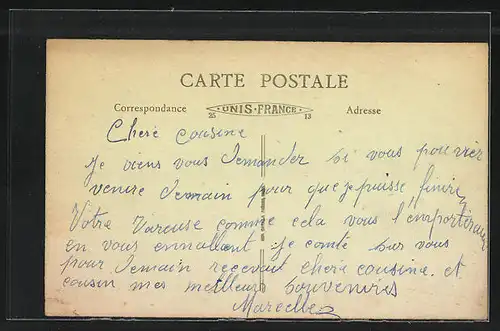 CARTE POSTALE
Correspondance UNIS-FRANCE Adresse
25 13
Cheré cousine
Je viens vous demander si vous pouvier
venire demain pour que je puisse finire
Votre Vareuse comme cela vous l'emportiraux
en vous ennallent Je comte sur vous
pour demain recevait cheré cousine et
cousin mes meilleurs souvenires
Marcelle